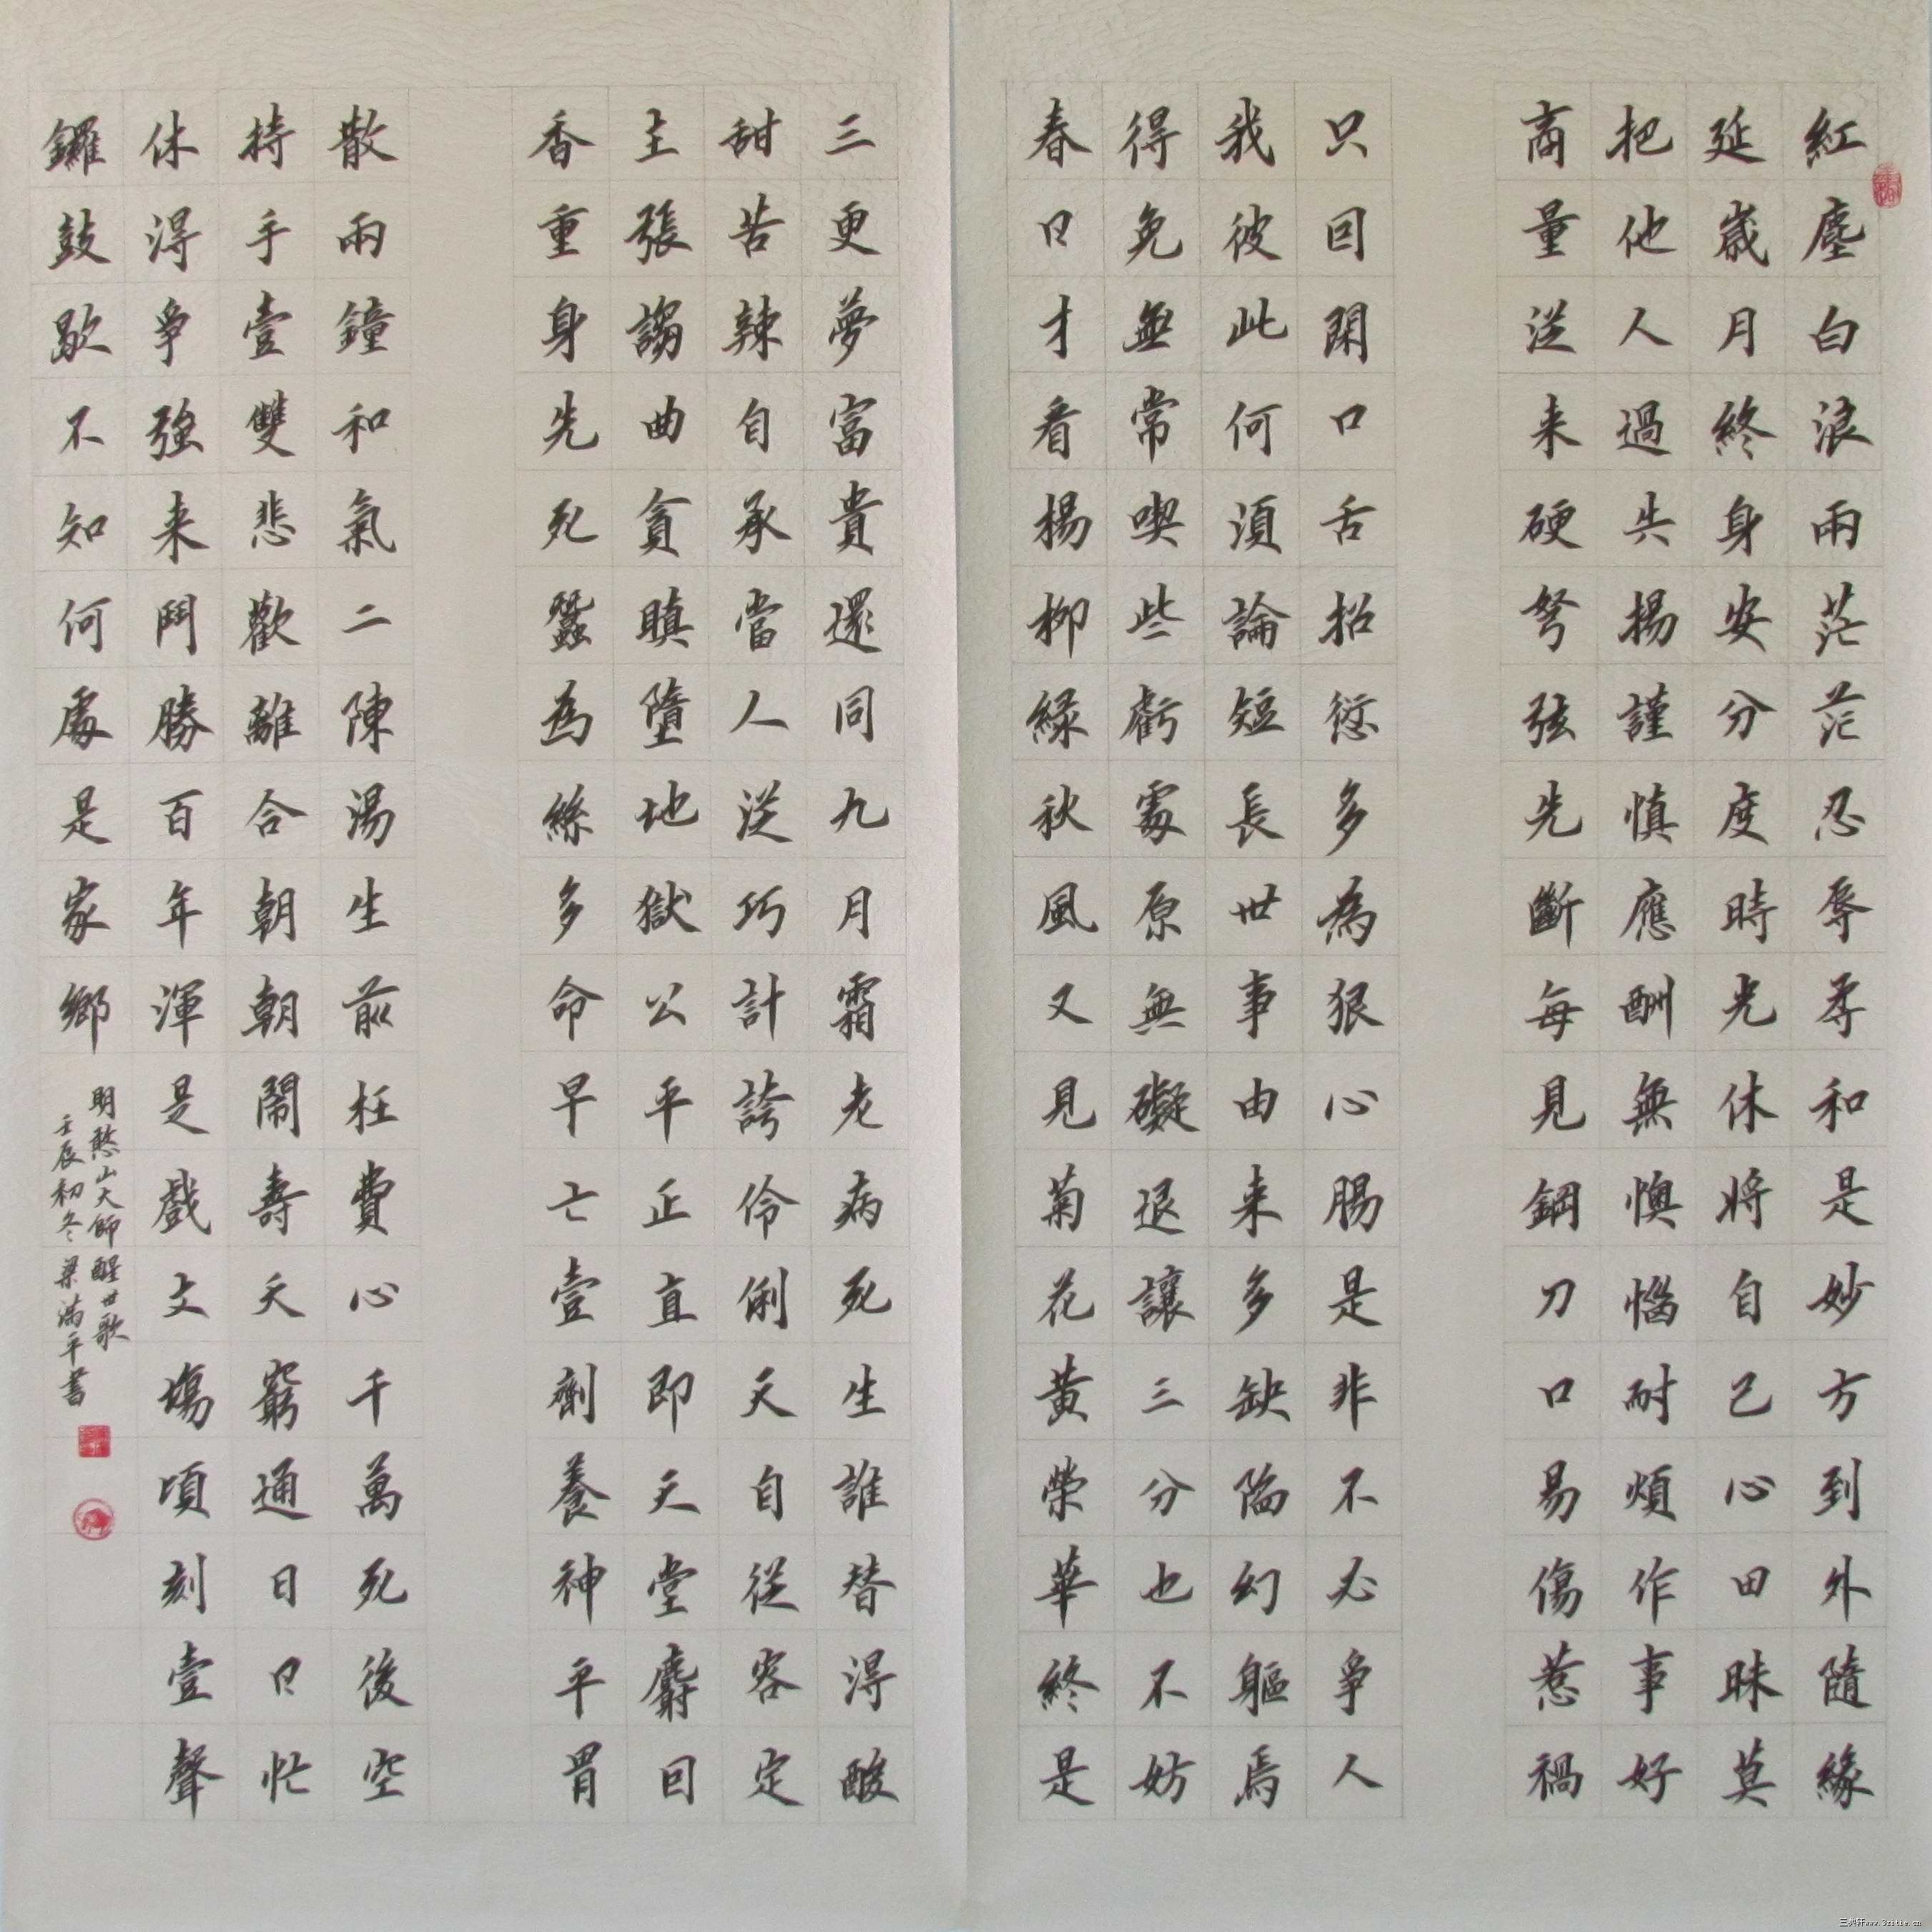 紅塵白浪兩茫茫忍辱柔和是妙方到外隨緣
延歲月終身安分度時光休將自己心田昧莫
把他人過失揚謹慎應酬無懊惱耐煩作事好
商量從来硬弩弦先斷每見鋼刀口易傷惹禍
只因閑口舌招愆多為狠心腸是非不必爭人
我彼此何須論短長世事由来多缺陷幻軀焉
得免無常喫些虧處原無礙退讓三分也不妨
春日才看楊柳綠秋風又見菊花黃榮華終是
三更夢富貴還同九月霜老病死生誰替得酸
甜苦辣自承當人從巧計誇伶俐天自從容定
主張謟曲貪瞋墮地獄公平正直即天堂麝因
香重身先死蠶為絲多命早亡壹劑養神平胃
散兩鐘和氣二陳湯生前枉費心千萬死後空
持手壹雙悲歡離合朝朝鬧壽夭窮通日日忙
休得爭強来鬥勝百年渾是戲文場頃刻壹聲
鑼鼓歇不知何處是家鄉
明憨山大師醒世歌
壬辰初冬梁滿平書
三羙軒www.3zitie.cn